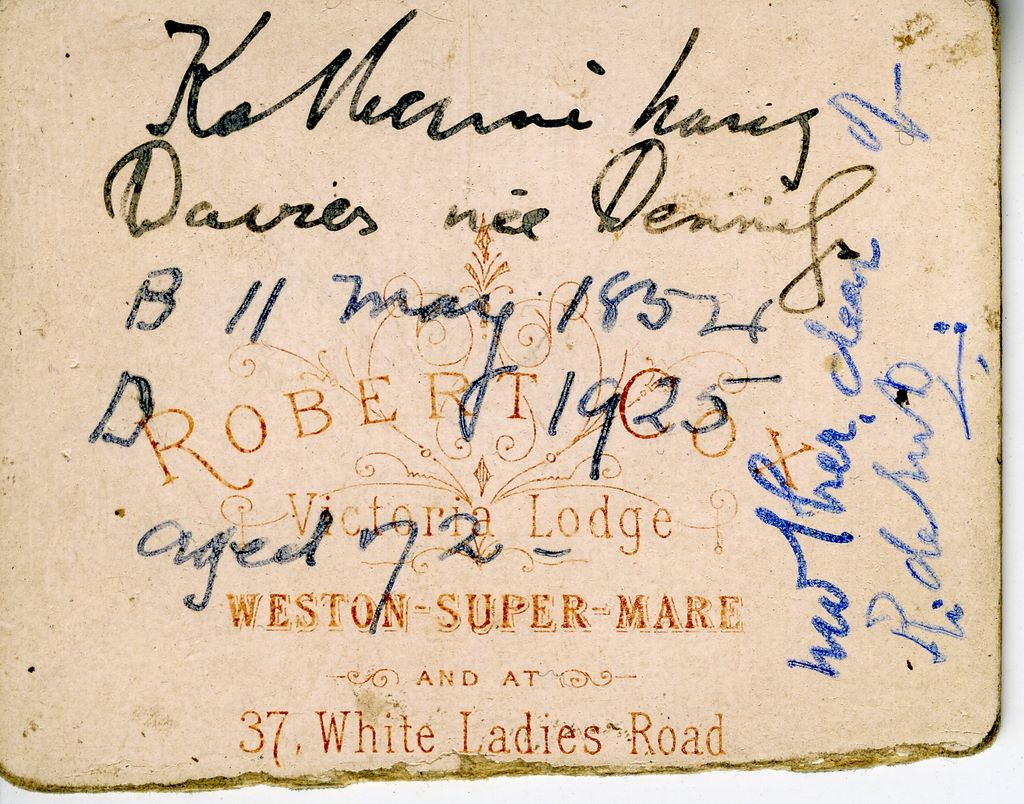 Katherine
Davies née Dennis
B 11 May 1852
D 1925
aged 72 -
ROBERT COX
Victoria Lodge
WESTON-SUPER-MARE
AND AT
37, White Ladies Road
mother, dear of
R.